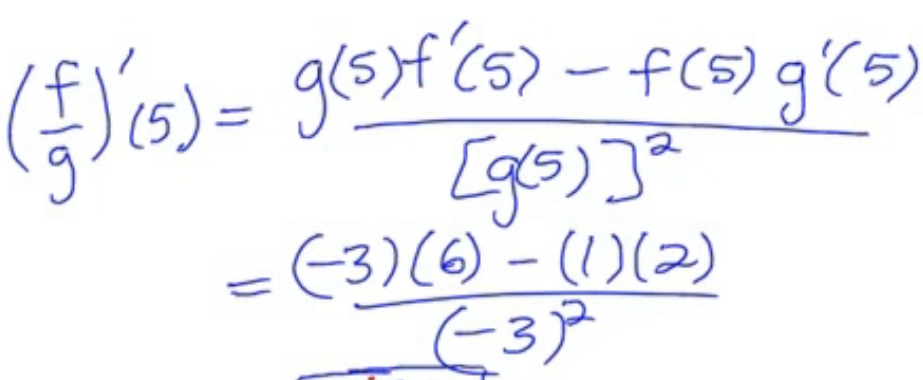 (f/g)'(5) = (g(5)f'(5) - f(5)g'(5)) / [g(5)]²
= ((-3)(6) - (1)(2)) / (-3)²